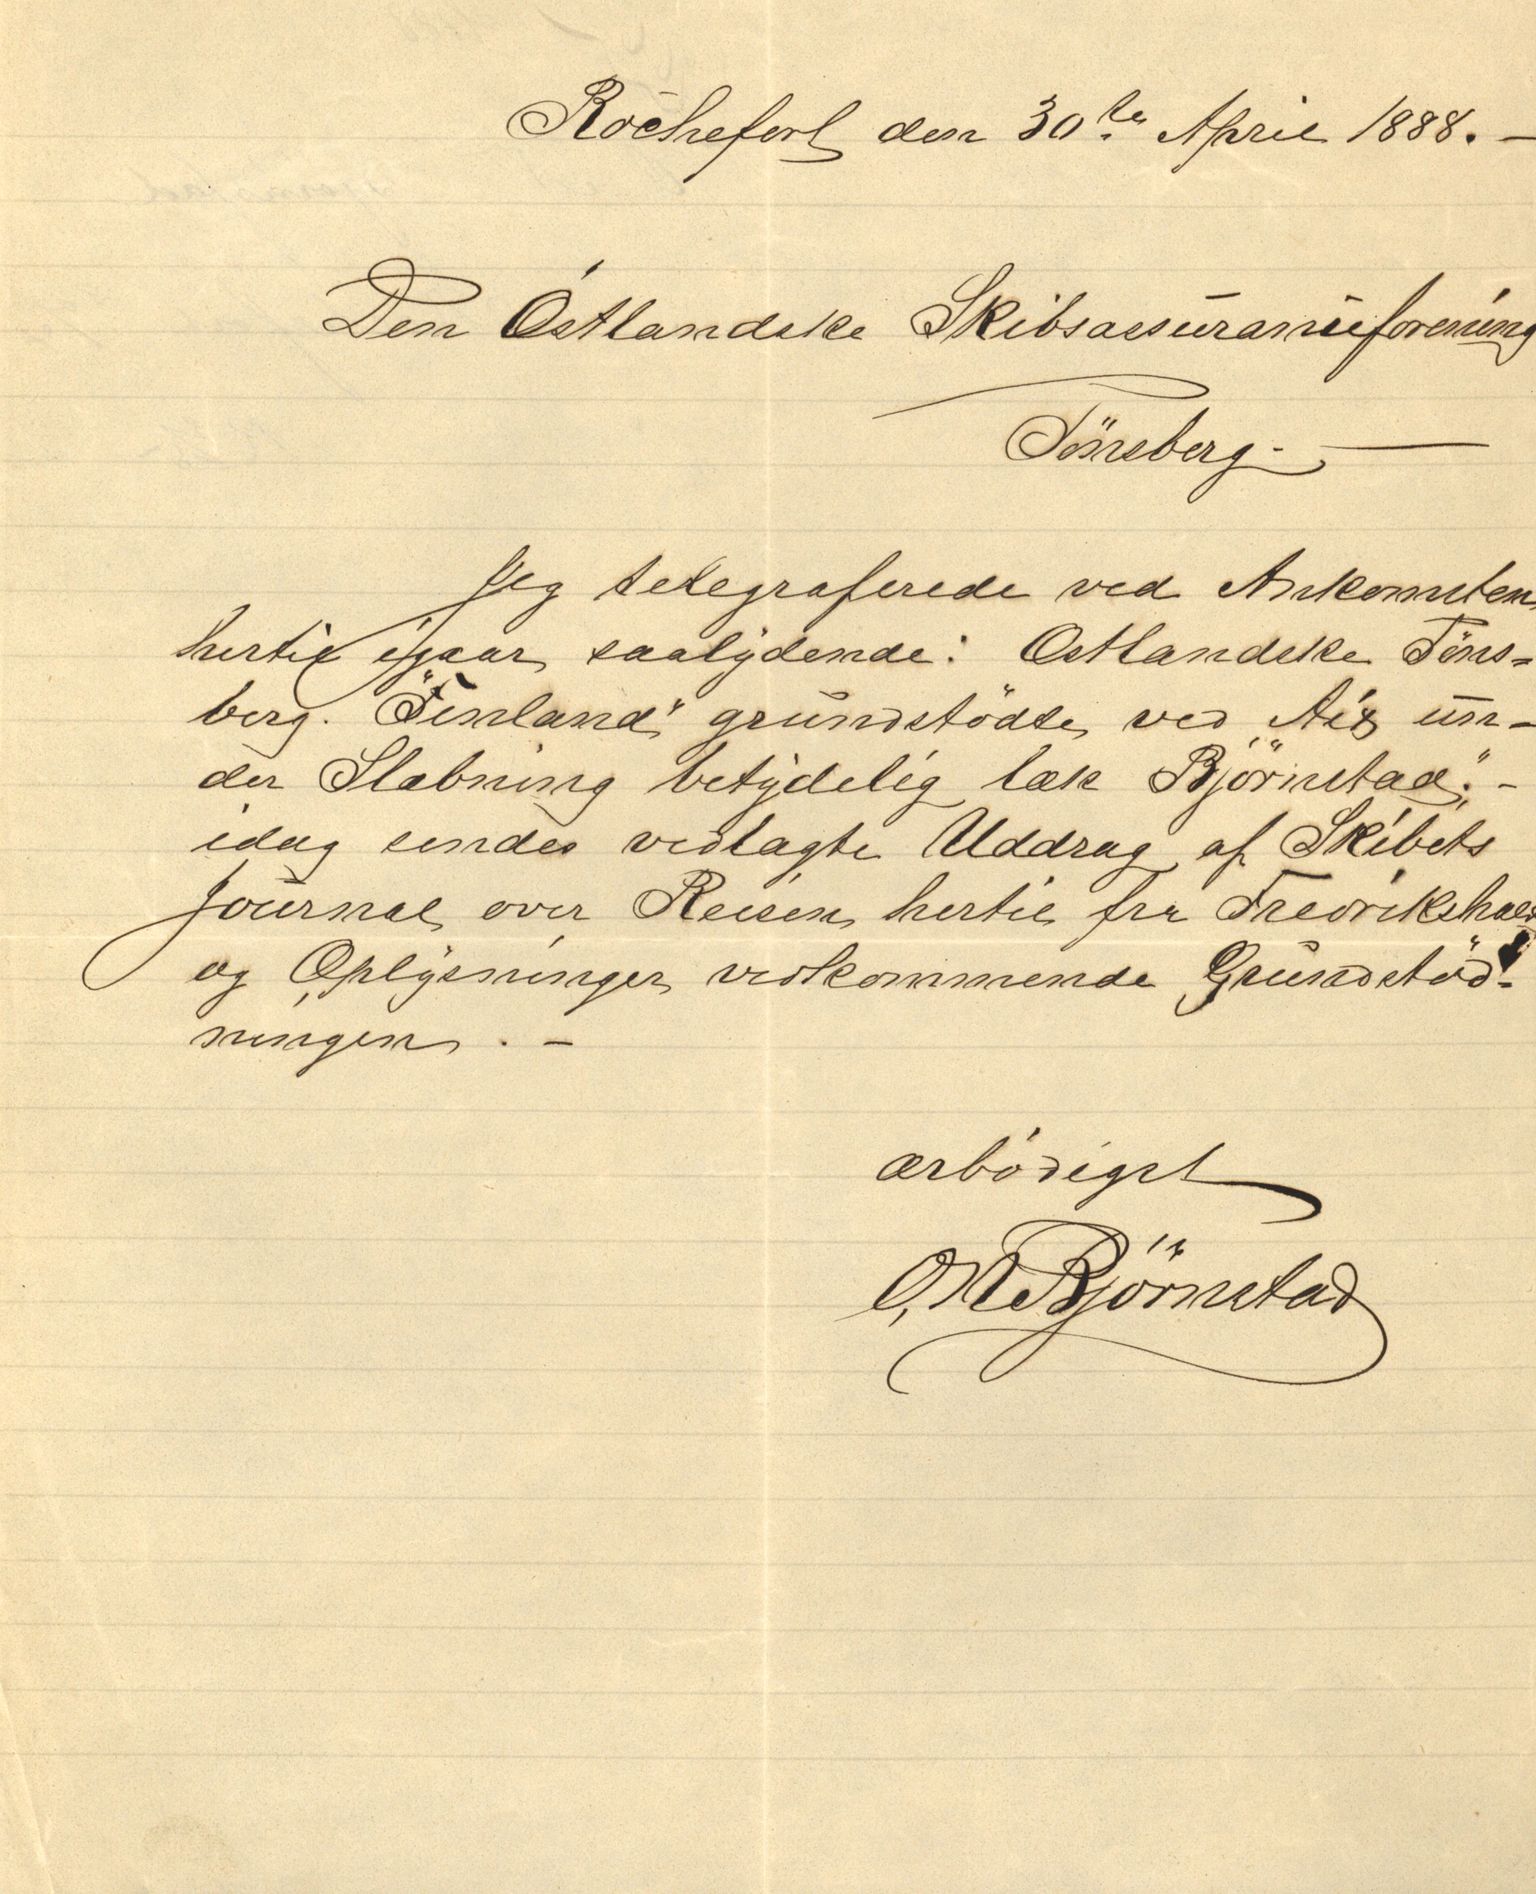 Rochefort den 30te April 1888. —
Den Östlandske Skibsassuranceforening
Tönsberg. —
Jeg telegraferede ved Ankomsten
hertil igaar saalydende: Ostlandske Töns-
berg. "Finland" grundstödte ved Aix un-
der Slæbning betydelig læk "Björnstad". -
idag sendes vedlagte Uddrag af Skibets
Journal over Reisen hertil fra Fredrikshald
og Oplysninger vedkommende Grundstöd-
ningen. —
ærbödigst
O, M Björnstad